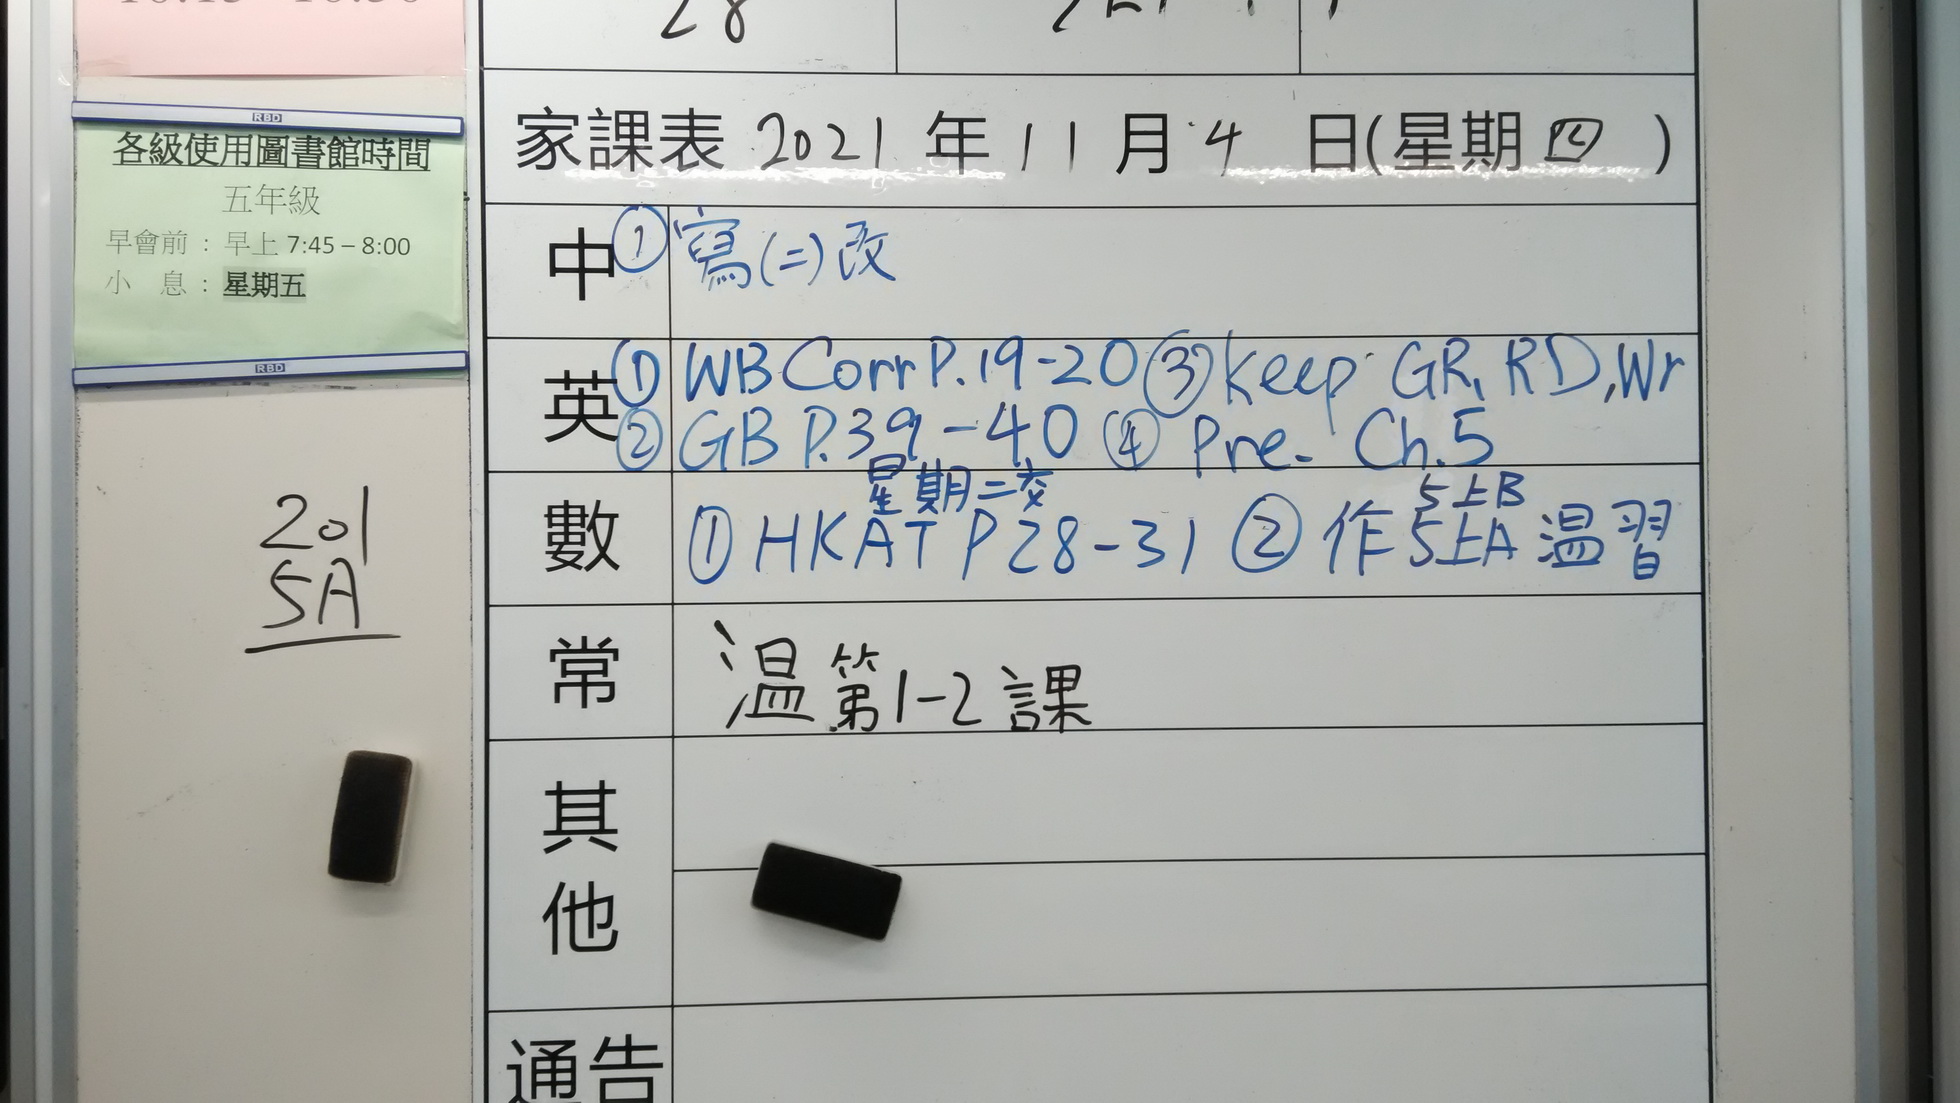 28
RBD
各級使用圖書館時間
五年級
早會前：早上 7:45 – 8:00
小 息：星期五
RBD
201
5A
家課表 2021 年 11 月 4 日(星期四)
中 ① 寫(二)改
英 ① WB Corr P.19-20 ③ Keep GR, RD, Wr
② GB P.39-40 ④ Pre. Ch.5
星期二交 5上B
數 ① HKAT P28-31 ② 作5上A 温習
常 温第1-2課
其他
通告